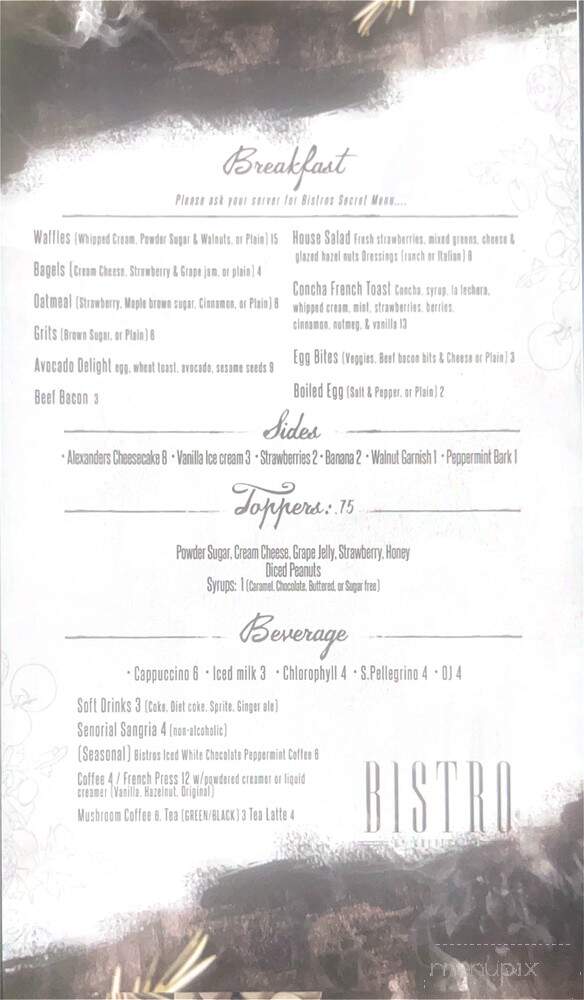 Breakfast
Please ask your server for Bistros Secret Menu....
Waffles (Whipped Cream, Powder Sugar & Walnuts, or Plain) 15
Bagels (Cream Cheese, Strawberry & Grape jam, or plain) 4
Oatmeal (Strawberry, Maple brown sugar, Cinnamon, or Plain) 8
Grits (Brown Sugar, or Plain) 6
Avocado Delight egg, wheat toast, avocado, sesame seeds 9
Beef Bacon 3
House Salad Fresh strawberries, mixed greens, cheese &
glazed hazel nuts Dressings (ranch or Italian) 8
Concha French Toast Concha, syrup, la lechera,
whipped cream, mint, strawberries, berries,
cinnamon, nutmeg, & vanilla 13
Egg Bites (Veggies, Beef bacon bits & Cheese or Plain) 3
Boiled Egg (Salt & Pepper, or Plain) 2
Sides
• Alexanders Cheesecake 8 • Vanilla Ice cream 3 • Strawberries 2 • Banana 2 • Walnut Garnish 1 • Peppermint Bark 1
Toppers: .75
Powder Sugar, Cream Cheese, Grape Jelly, Strawberry, Honey
Diced Peanuts
Syrups: 1 (Caramel, Chocolate, Buttered, or Sugar free)
Beverage
• Cappuccino 6 • Iced milk 3 • Chlorophyll 4 • S.Pellegrino 4 • OJ 4
Soft Drinks 3 (Coke, Diet coke, Sprite, Ginger ale)
Senorial Sangria 4 (non-alcoholic)
(Seasonal) Bistros Iced White Chocolate Peppermint Coffee 6
Coffee 4 / French Press 12 w/powdered creamer or liquid
creamer (Vanilla, Hazelnut, Original)
Mushroom Coffee 6, Tea (GREEN/BLACK) 3 Tea Latte 4
BISTRO
menupix